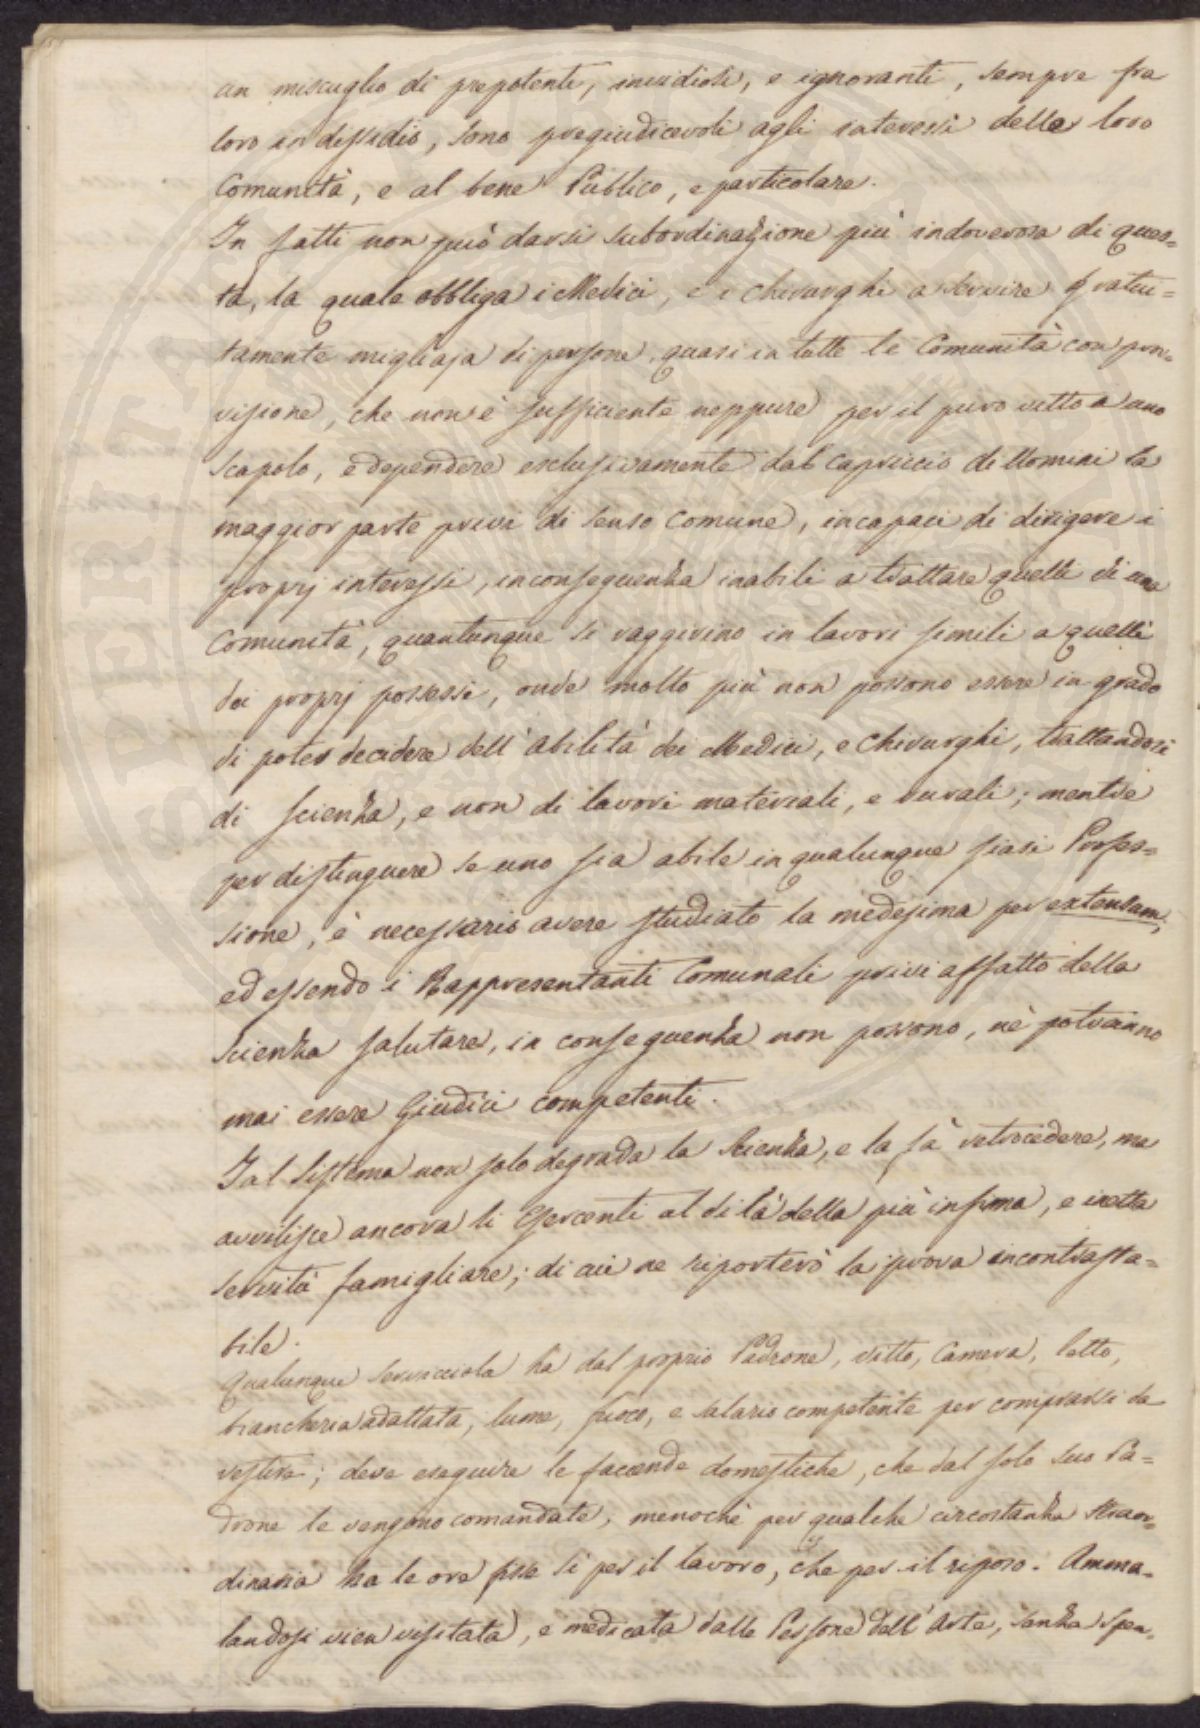 un miscuglio di prepotenti, invidiosi, e ignoranti, sempre fra
loro in dissidio, sono pregiudicevoli agli interessi delle loro
Comunità, e al bene Publico, e particolare.
In fatti non può darsi subordinazione più indoverosa di ques=
ta, la quale obbliga i Medici, e i Chirurghi a servire gratui=
tamente migliaja di persone quasi in tutte le Comunità con prov=
visione, che non è sufficiente neppure per il puro vitto a uno
Scapolo, e dependere esclusivamente dal Capriccio di Uomini la
maggior parte privi di senso Comune, incapaci di dirigere i
proprj interessi, in conseguenza inabili a trattare quelli di una
Comunità, quantunque si raggirino in lavori simili a quelli
dei proprj possessi, onde molto più non possono essere in grado
di poter decidere dell'abilità dei Medici, e Chirurghi, trattandosi
di scienza, e non di lavori materiali, e rurali; mentre
per distinguere se uno sia abile in qualunque siasi Profes=
sione, è necessario avere studiato la medesima per extensam,
ed essendo i Rappresentanti Comunali privi affatto della
Scienza salutare, in conseguenza non possono, nè potranno
mai essere Giudici competenti.
Tal Sistema non solo degrada la Scienza, e la fà retrocedere, ma
avvilisce ancora li Esercenti al di là della più infima, e inetta
servitù famigliare; di cui ne riporterò la prova incontrasta=
bile.
Qualunque servicciola hà dal proprio Padrone, vitto, Camera, letto,
biancheria adattata, lume, fuoco, e salario competente per comprarsi da
vestire; deve eseguire le faccende domestiche, che dal solo suo Pa=
drone le vengono comandate, menochè per qualche circostanza straor=
dinaria ha le ore fisse sì per il lavoro, che per il riposo. Amma=
landosi vien visitata, e medicata dalle Persone dell'Arte, senza spen=